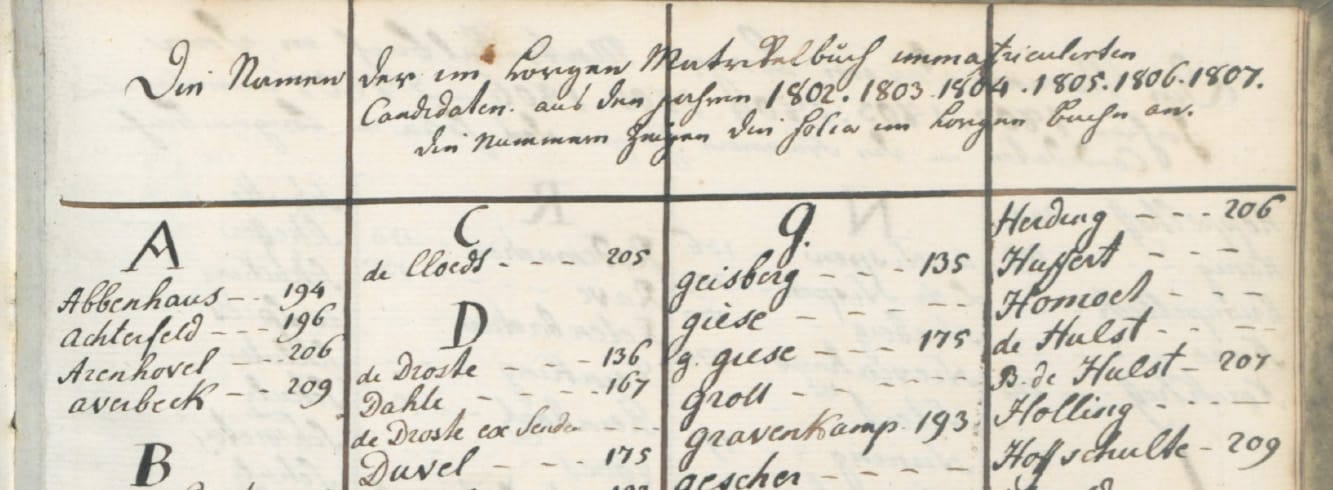 Die Namen der im vorgen Matrikelbuch immatriculierten
Candidaten aus den Jahren 1802. 1803. 1804. 1805. 1806. 1807.
die Nummern Zeigen die folia im vorgen buche an.
A
Abbenhaus 194
Achterfeld 196
Arenhovel 206
averbeck 209
B
C
de Cloedt 205
D
de Droste 136
Dahle 167
de Droste ex Senden
Duvel 175
g.
geisberg 135
giese
g. giese 175
groll
gravenkamp 193
gescher
Herding 206
Huffert
Homoet
de Hulst
B. de Hulst 207
Holling
Hoffschulte 209